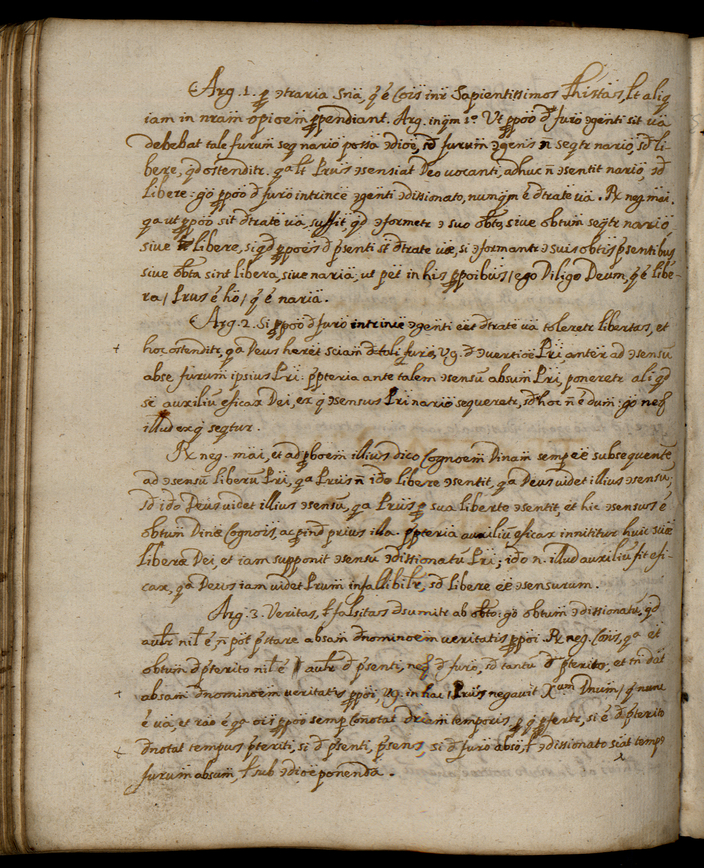 Arg. 1. ꝑ ɔtraria Snã, q̃ ẽ Cõis inr̃ Sapientissimos Thistas, Lt aliq
iam in nr̃am opiõem ꝓpendiant. Arg. inq̃m 1º Ut ꝓpõo d̃ furo ɔgenti sit va
debebat tale furum̃ seq nario possa ɔdiõe, sd̃ furum̃ ɔgens ñ seqtr nario, sd̃ li-
bere, qd̃ ostenditr: qa lt Prus ɔsensiat Deo vocanti, adhuc ñ ɔsentit nario, sd̃
libere: go ꝓpõo d̃ furo intrince ɔgenti ɔditionato, nunq̃m ẽ dtrate va. Rx neg mai.
qa ut ꝓpõo sit dtrate va, suffit, qd̃ ɔformetr ɔ suo obto, sive obtum seqtr nario,
sive libere, siqd̃ ꝓpões d̃ p̃senti st̃ dtrate væ, si ɔformantr ɔ suis obtis p̃sentibus
sive obta sint libera, sive naria, ut pet in his ꝓpoibus / ego Diligo Deum, q̃ ẽ libe-
ra / Prus ẽ ho / q̃ ẽ naria.
Arg. 2. Si ꝓpõo d̃ furo intrince ɔgenti eet dtrate va tolleretr libertas, et
hoc ostenditr, qa Deus heret sciam̃ d̃ tali furo, vg. d̃ ɔvertiõe Pri anter ad ɔsensũ
abse furum̃ ipsius Pri: p̃pteria ante talem ɔsensũ absum Pri, poneretr aliqd̃
se auxiliũ eficax Dei, ex q̃ ɔsensus Pri nario sequeretr, sd̃ hoc ñ ẽ dum̃: go neq
illud ex q̃ seqtur.
Rx neg. mai, et ad ꝓboem̃ illius dico Cognoem̃ Dinam̃ semp eẽ subsequente
ad ɔsensũ liberũ Pri, qa Prus ñ ido libere ɔsentit, qa Deus videt illius ɔsensũ;
sd̃ ido Deus videt illius ɔsensũ, qa Prus ꝑ sua liberte ɔsentit, et hic ɔsensus ẽ
obtum Dinæ Cognois, ac pind̃ prius illa. p̃pteria auxiliũ eficax innititur huic sciæ
liberæ Dei, et iam supponit ɔsensũ ɔditionatũ Pri; ido n. illud auxiliũ fit efi-
cax, qa Deus iam videt Prum̃ infallibilr, sd̃ libere eẽ ɔsensurum.
Arg. 3. Veritas, ł falsitas dsumitr ab obto: go obtum ɔditionatũ, qd̃
aultr nil ẽ, ñ pot p̃stare absam̃ dnominoem veritatis ꝓpoi. Rx neg. Cons, qa et
obtum d̃ p̃terito nil ẽ aultr d̃ p̃senti, neq d̃ furo, sd̃ tantũ d̃ p̃terito, et tn dat
absam̃ dnominoem veritatis ꝓpoi, vg. in hac / Prus negavit Xum Dnum / q̃ nunc
ẽ va, et rao ẽ qa ois ꝓpõo semp Conotat driam temporis, ꝓ q̃ p̃fertr, si ẽ d̃ p̃terito
dnotat tempus p̃teriti, si d̃ p̃senti, p̃sens, si d̃ furo abso, ł ɔditionato sigat temps
furum absum, ł sub ɔdioe ponenda.